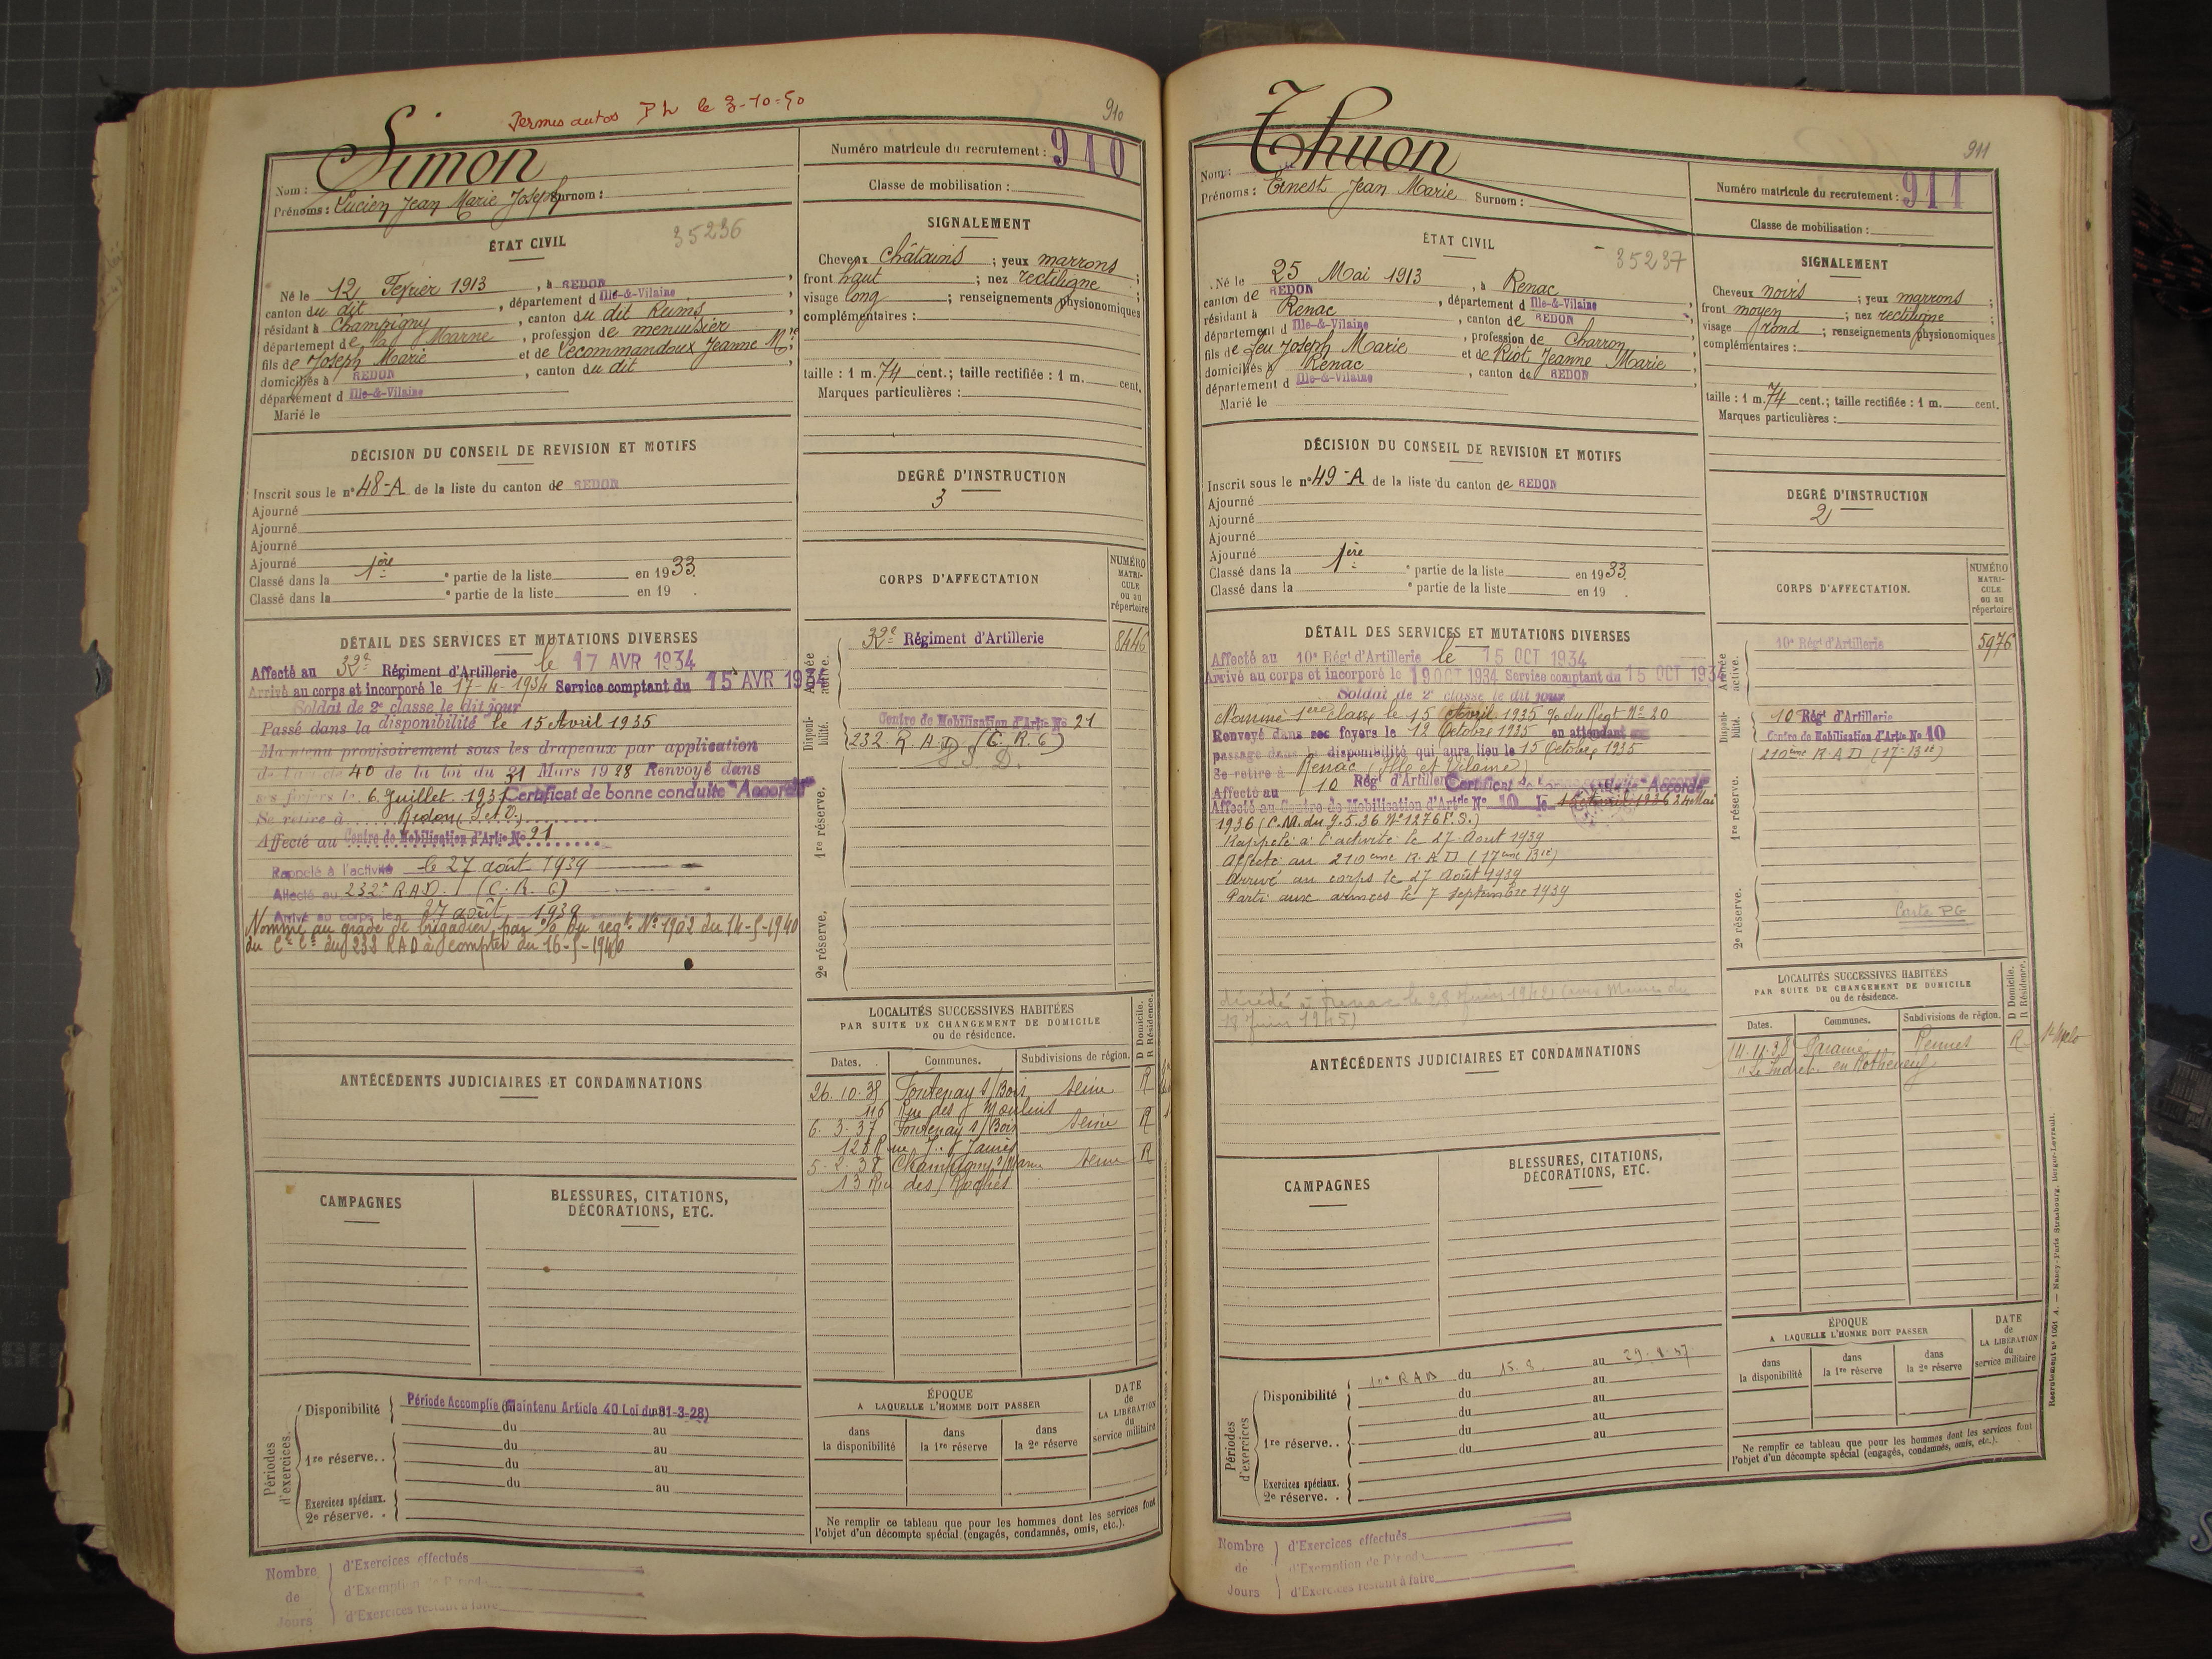 Permis autos PL le 3-10-50
910
Simon
Nom :
Prénoms : Lucien Jean Marie Joseph Surnom :
Numéro matricule du recrutement : 910
Classe de mobilisation :
ÉTAT CIVIL
35236
Né le 12 Fevrier 1913, à REDON,
canton du dit, département d Ille-&-Vilaine,
résidant à Champigny, canton du dit Reims,
département de la Marne, profession de menuisier
fils de Joseph Marie et de Lecommandoux Jeanne Mie
domiciliés à REDON, canton du dit
département d Ille-&-Vilaine
Marié le
SIGNALEMENT
Cheveux châtains ; yeux marrons ;
front haut ; nez rectiligne ;
visage long ; renseignements physionomiques
complémentaires :
taille : 1 m. 74 cent.; taille rectifiée : 1 m. cent.
Marques particulières :
DÉCISION DU CONSEIL DE REVISION ET MOTIFS
Inscrit sous le n° 48-A de la liste du canton de REDON
Ajourné
Ajourné
Ajourné
Ajourné
Classé dans la 1ère e partie de la liste en 1933.
Classé dans la e partie de la liste en 19 .
DEGRÉ D'INSTRUCTION
3
CORPS D'AFFECTATION
NUMÉRO MATRI-CULE ou au répertoire
DÉTAIL DES SERVICES ET MUTATIONS DIVERSES
Affecté au 32e Régiment d'Artillerie le 17 AVR 1934
Arrivé au corps et incorporé le 17-4-1934 Service comptant du 15 AVR 1934
Soldat de 2e classe le dit jour
Passé dans la disponibilité le 15 Avril 1935
Maintenu provisoirement sous les drapeaux par application
de l'article 40 de la loi du 31 Mars 1928 Renvoyé dans
ses foyers le 6 Juillet 1935 Certificat de bonne conduite "Accordé"
Se retire à Redon (I et V)
Affecté au Centre de Mobilisation d'Artie No 21
Rappelé à l'activité le 27 août 1939
Affecté au 232e RAD. (C. R. 6)
Arrivé au corps le 27 août 1939
Nommé au grade de brigadier par % du regt No 1902 du 14-5-1940
du Ct Ct du 232 RAD à compter du 16-5-1940
Armée active.
32e Régiment d'Artillerie 8446
Disponibilité.
Centre de Mobilisation d'Artie No 21
232 R. A. D. (C. R. 6)
1re réserve.
2e réserve.
LOCALITÉS SUCCESSIVES HABITÉES
PAR SUITE DE CHANGEMENT DE DOMICILE
ou de résidence.
D Domicile.
R Résidence.
Dates. Communes. Subdivisions de région.
Fontenay s/Bois Seine R
116 Rue des Moulins
6. 3. 37 Fontenay s/Bois Seine R
128 Rue J. Jaurès
5. 2. 38 Champigny s/Marne Seine R
13 Rue des Roches
ANTÉCÉDENTS JUDICIAIRES ET CONDAMNATIONS
CAMPAGNES
BLESSURES, CITATIONS,
DÉCORATIONS, ETC.
Périodes d'exercices.
Disponibilité Période Accomplie (Maintenu Article 40 Loi du 31-3-28)
du au
du au
1re réserve. . du au
du au
Exercices spéciaux.
2e réserve. .
ÉPOQUE
A LAQUELLE L'HOMME DOIT PASSER
dans la disponibilité
dans la 1re réserve
dans la 2e réserve
DATE de LA LIBÉRATION du service militaire
Ne remplir ce tableau que pour les hommes dont les services font
l'objet d'un décompte spécial (engagés, condamnés, omis, etc.).
Nombre de Jours
d'Exercices effectués
d'Exemption de Période
d'Exercices restant à faire
911
Thuon
Nom :
Prénoms : Ernest Jean Marie Surnom :
Numéro matricule du recrutement : 911
Classe de mobilisation :
ÉTAT CIVIL
35237
Né le 25 Mai 1913, à Renac
canton de REDON, département d Ille-&-Vilaine,
résidant à Renac, canton de REDON,
département d Ille-&-Vilaine, profession de Charron
fils de feu Joseph Marie et de Riot Jeanne Marie
domiciliés à Renac, canton de REDON
département d Ille-&-Vilaine
Marié le
SIGNALEMENT
Cheveux noirs ; yeux marrons ;
front moyen ; nez rectiligne ;
visage rond ; renseignements physionomiques
complémentaires :
taille : 1 m. 74 cent.; taille rectifiée : 1 m. cent.
Marques particulières :
DÉCISION DU CONSEIL DE REVISION ET MOTIFS
Inscrit sous le n° 49-A de la liste du canton de REDON
Ajourné
Ajourné
Ajourné
Ajourné
Classé dans la 1ère e partie de la liste en 1933.
Classé dans la e partie de la liste en 19 .
DEGRÉ D'INSTRUCTION
2
CORPS D'AFFECTATION.
NUMÉRO MATRI-CULE ou au répertoire
DÉTAIL DES SERVICES ET MUTATIONS DIVERSES
Affecté au 10e Régt d'Artillerie le 15 OCT 1934
Arrivé au corps et incorporé le 19 OCT 1934 Service comptant du 15 OCT 1934
Soldat de 2e classe le dit jour
Nommé 1ère classe le 15 Avril 1935 % du Régt No 20
Renvoyé dans ses foyers le 12 Octobre 1935 en attendant son
passage dans la disponibilité qui aura lieu le 15 Octobre 1935
Se retire à Renac (Ille et Vilaine)
Affecté au 10 Rég d'Artillerie Certificat de bonne conduite "Accordé"
Affecté au Centre de Mobilisation d'Artie No 10 le 24 Mai
1936 (C.M. du 7.5.36 No 1276 P.S.)
Rappelé à l'activité le 27 Août 1939
Affecté au 210ème R.A.D (17ème Bie)
Arrivé au corps le 27 Août 1939
Parti aux armées le 7 septembre 1939
décédé à Renac le 28 Juin 1942 (avis Mairie du
18 Juin 1945)
Armée active.
10e Régt d'Artillerie 5976
Disponibilité.
10 Rég d'Artillerie
Centre de Mobilisation d'Artie No 10
210ème R.A.D (17e Bie)
1re réserve.
2e réserve.
Carte PG
LOCALITÉS SUCCESSIVES HABITÉES
PAR SUITE DE CHANGEMENT DE DOMICILE
ou de résidence.
D Domicile.
R Résidence.
Dates. Communes. Subdivisions de région.
14.11.38 Paramé Rennes R St Malo
en Rothéneuf
ANTÉCÉDENTS JUDICIAIRES ET CONDAMNATIONS
CAMPAGNES
BLESSURES, CITATIONS,
DÉCORATIONS, ETC.
Périodes d'exercices
Disponibilité 10e RAD du 15.8. au 29.8.37
du au
du au
1re réserve. . du au
du au
Exercices spéciaux.
2e réserve. .
ÉPOQUE
A LAQUELLE L'HOMME DOIT PASSER
dans la disponibilité
dans la 1re réserve
dans la 2e réserve
DATE de LA LIBÉRATION du service militaire
Ne remplir ce tableau que pour les hommes dont les services font
l'objet d'un décompte spécial (engagés, condamnés, omis, etc.).
Recrutement No 1001 A. — Nancy-Paris-Strasbourg, Berger-Levrault.
Nombre de Jours
d'Exercices effectués
d'Exemption de Période
d'Exercices restant à faire